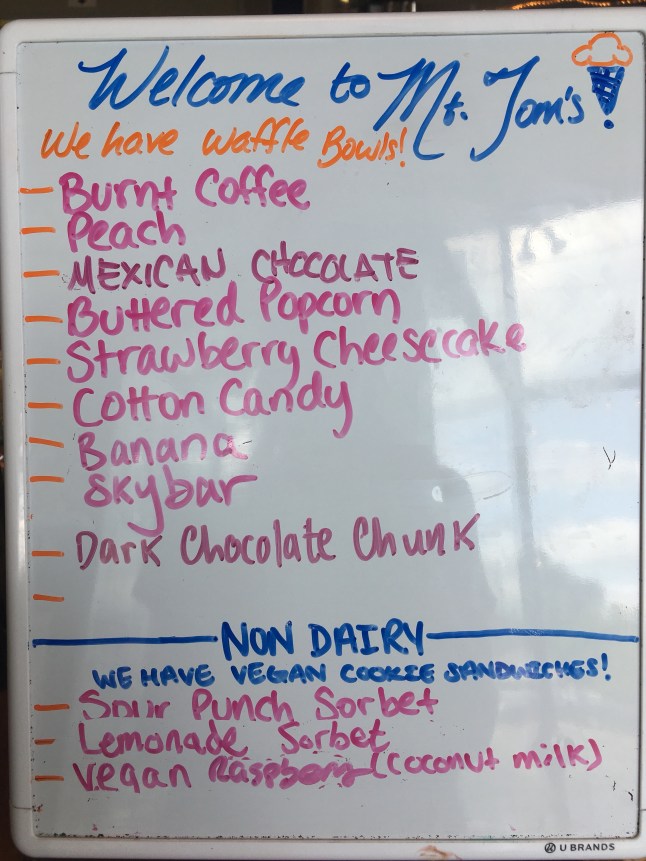 Welcome to Mt. Tom's!
We have waffle Bowls!
Burnt Coffee
Peach
MEXICAN CHOCOLATE
Buttered Popcorn
Strawberry Cheesecake
Cotton Candy
Banana
Skybar
Dark Chocolate Chunk
NON DAIRY
WE HAVE VEGAN COOKIE SANDWICHES!
Sour Punch Sorbet
Lemonade Sorbet
Vegan Raspberry (coconut milk)
U BRANDS